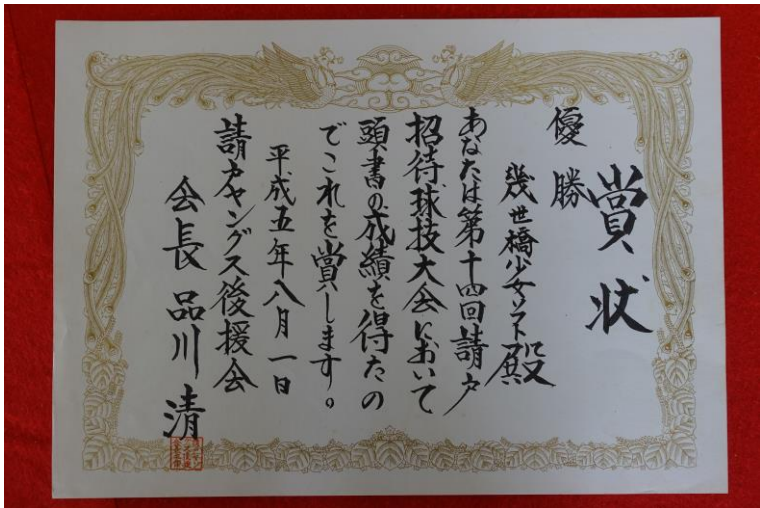 賞状
優勝
幾世橋少女ソフト殿
あなたは第十四回請戸
招待球技大会において
頭書の成績を得たの
でこれを賞します。
平成五年八月一日
請戸ヤングス後援会
会長 品川清